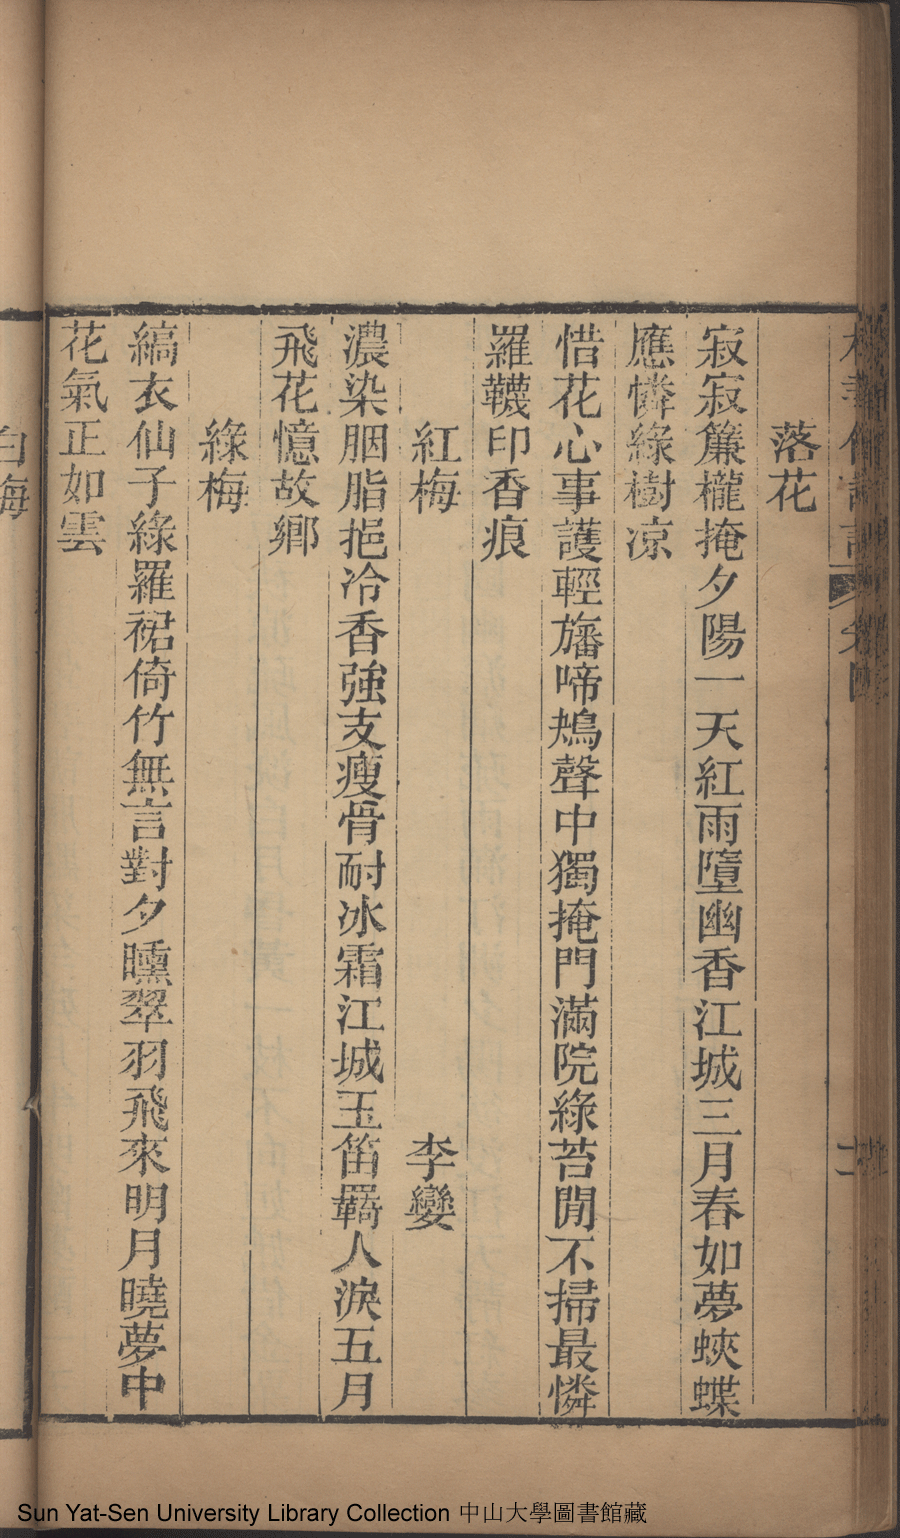 落花
寂寂簾櫳掩夕陽一天紅雨墮幽香江城三月春如夢蛺蝶
應憐綠樹凉
惜花心事護輕旛啼鴂聲中獨掩門滿院綠苔閒不掃最憐
羅韈印香痕
紅梅 李孌
濃染胭脂挹冷香強支瘦骨耐冰霜江城玉笛羈人淚五月
飛花憶故鄉
綠梅
縞衣仙子綠羅裙倚竹無言對夕曛翠羽飛來明月曉夢中
花氣正如雲
白梅
Sun Yat-Sen University Library Collection 中山大學圖書館藏